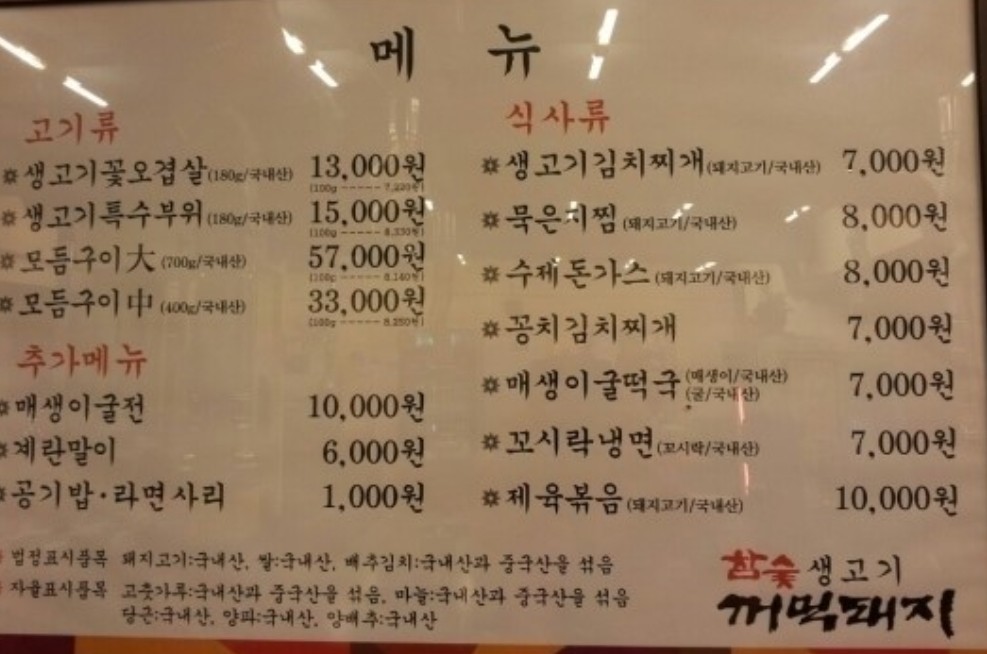 메 뉴
고기류
생고기꽃오겹살(180g/국내산) 13,000원
(100g ------ 7,220원)
생고기특수부위(180g/국내산) 15,000원
(100g ------ 8,330원)
모듬구이大(700g/국내산) 57,000원
(100g ------ 8,140원)
모듬구이中(400g/국내산) 33,000원
(100g ------ 8,250원)
추가메뉴
매생이굴전 10,000원
계란말이 6,000원
공기밥·라면사리 1,000원
식사류
생고기김치찌개(돼지고기/국내산) 7,000원
묵은지찜(돼지고기/국내산) 8,000원
수제돈가스(돼지고기/국내산) 8,000원
꽁치김치찌개 7,000원
매생이굴떡국(매생이/국내산) 7,000원
(굴/국내산)
꼬시락냉면(꼬시락/국내산) 7,000원
제육볶음(돼지고기/국내산) 10,000원
법정표시품목 돼지고기:국내산, 쌀:국내산, 배추김치:국내산과 중국산을 섞음
자율표시품목 고춧가루:국내산과 중국산을 섞음, 마늘:국내산과 중국산을 섞음
당근:국내산, 양파:국내산, 양배추:국내산
참숯생고기
꺼먹돼지